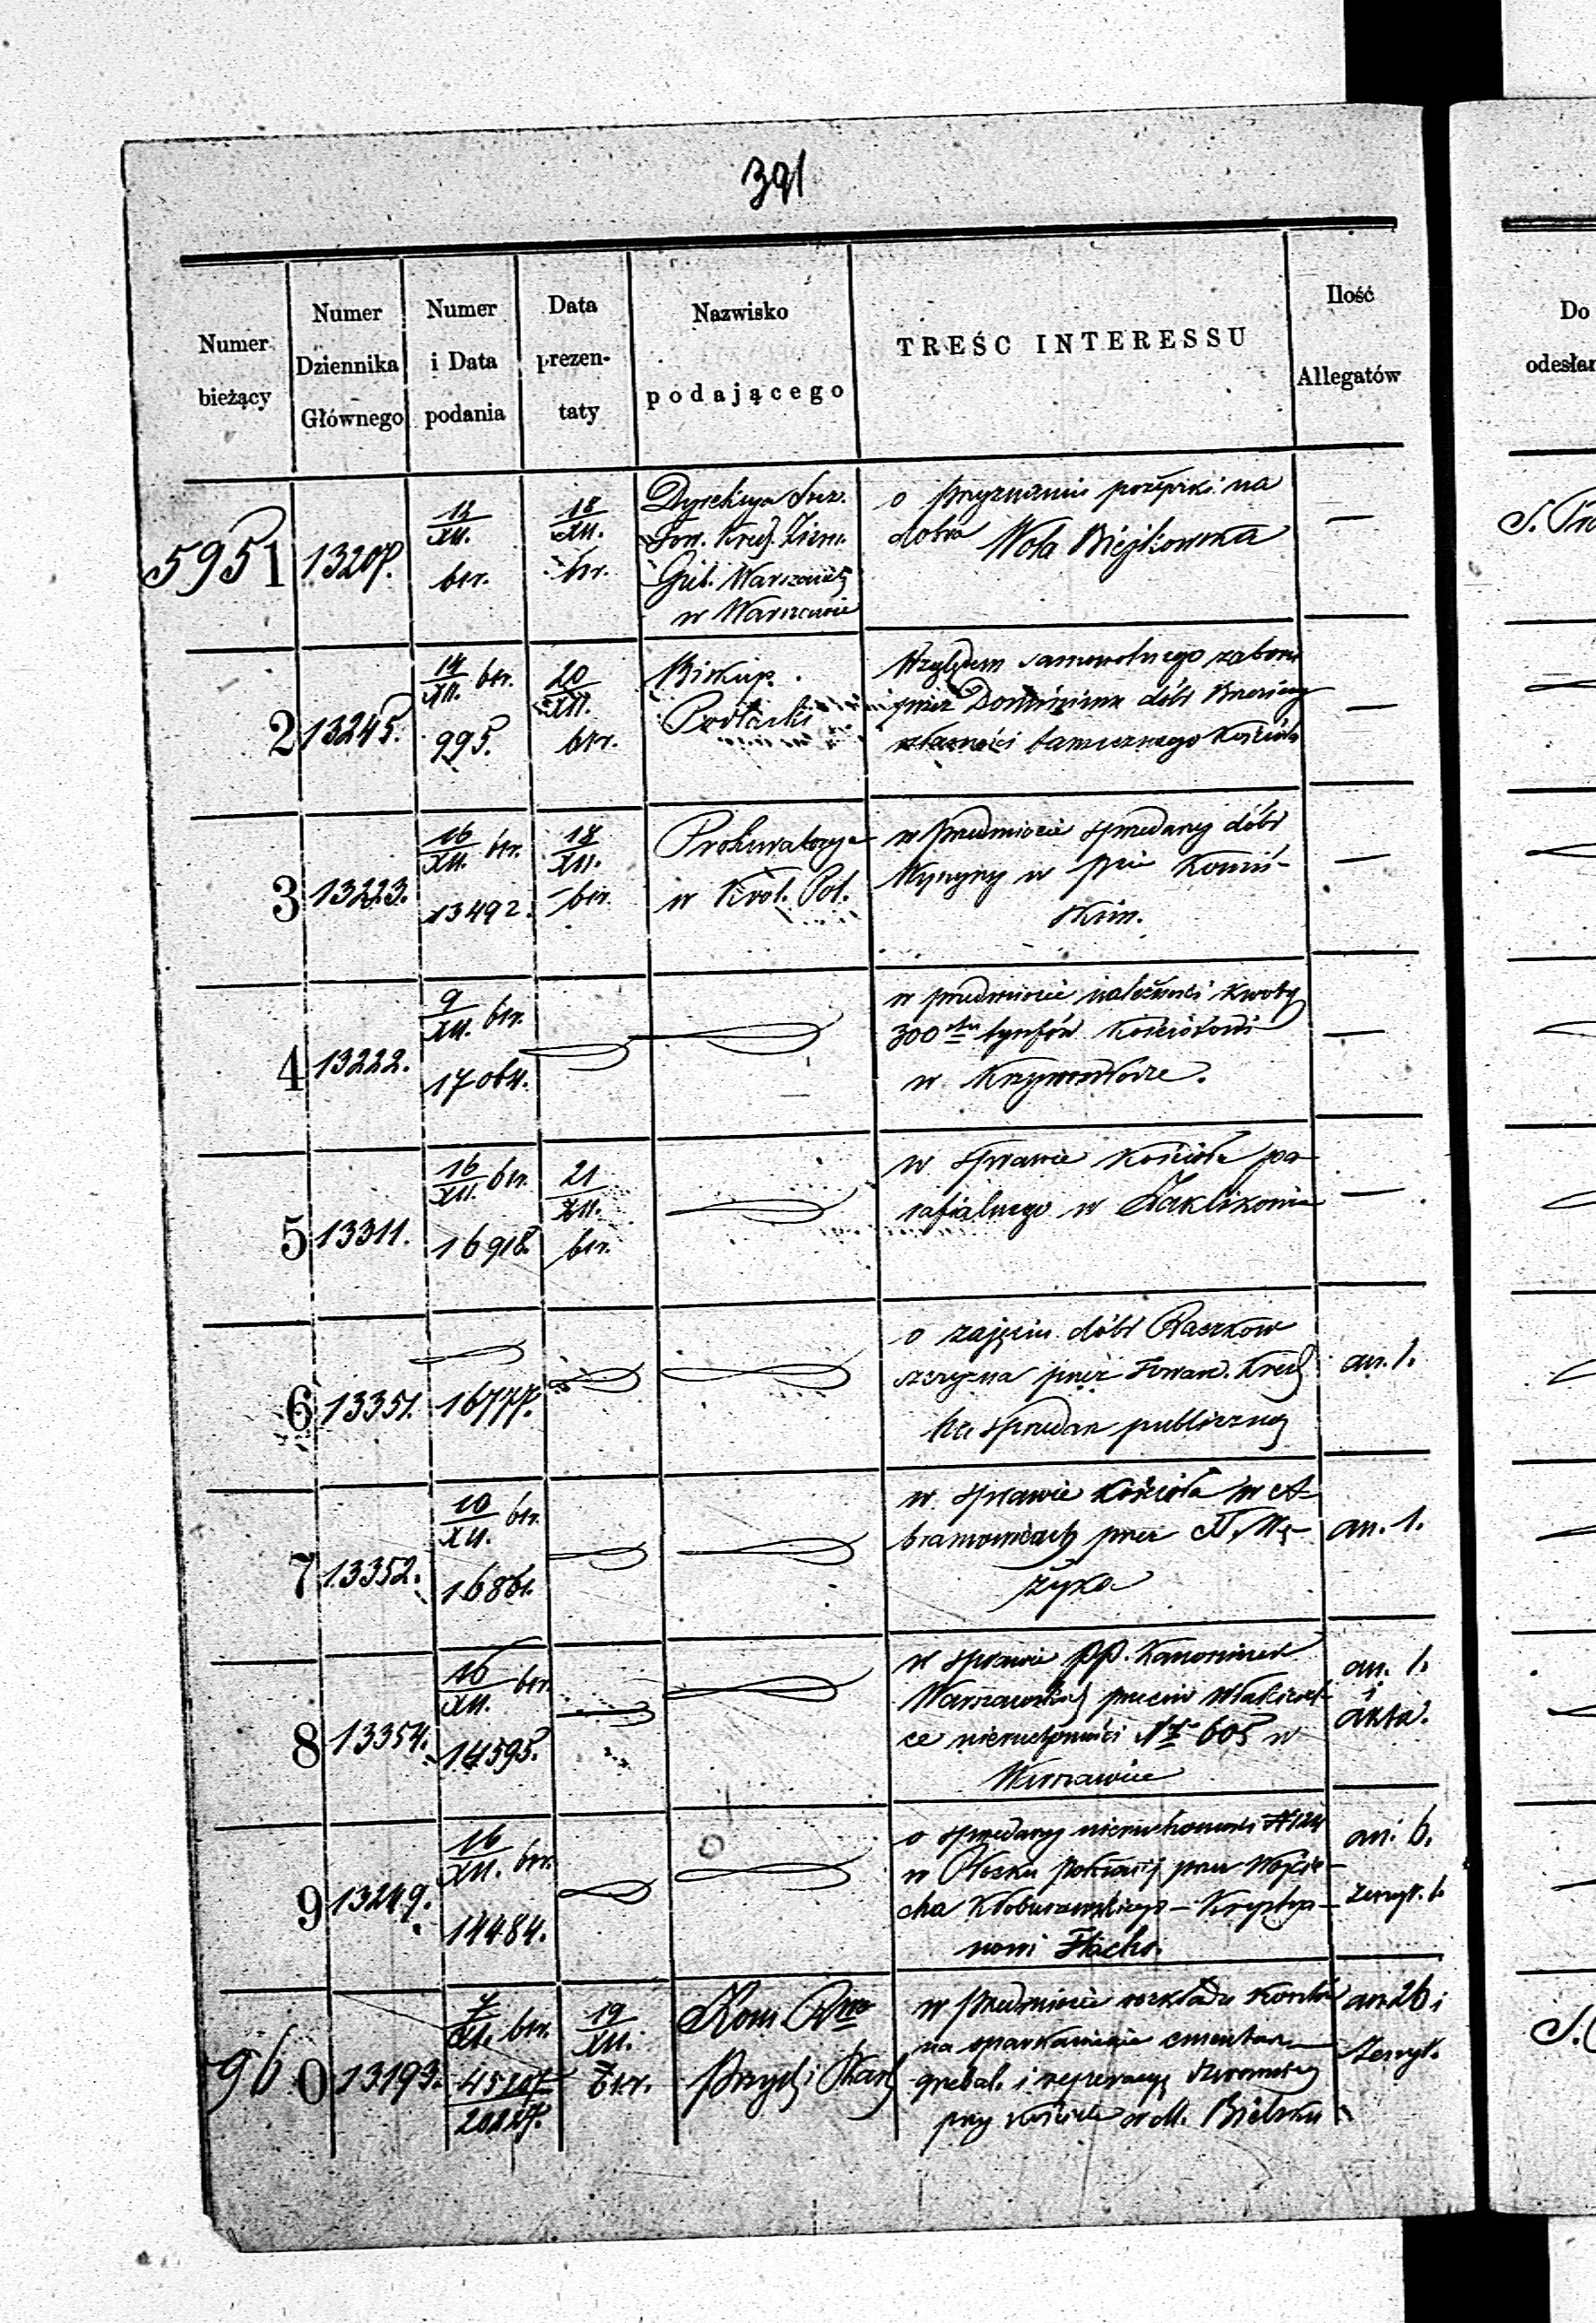 391
Numer bieżący
Numer Dziennika Głównego
Numer i Data podania
Data prezen- taty
Nazwisko podającego
TREŚĆ INTERESSU
Ilość Allegatów
Do
odesłan
5951
13207.
12/XII.
btr.
18/XII.
btr.
Dyrekcya Szcz.
Tow. Kred. Ziem.
Gub. Warszawskiej
w Warszawie
o przyznaniu pożyczki na
dobra Wola Biejkowska
—
2
13245.
14/XII. btr.
995.
20/XII.
btr.
Biskup
Podlaski
Względem samowolnego zaboru
przez Dominium dóbr
własności tamecznego Kościoła
—
3
13223.
16/XII. btr.
13492.
18/XII.
btr.
Prokuratorya
w Król. Pol.
w przedmiocie sprzedaży dóbr
w pcie Koniń-
skim.
—
4
13222.
9/XII. btr.
17064.
w przedmiocie należności kwoty
300 tynfów Kościołowi
w Krzynowłodze.
—
5
13311.
16/XII. btr.
16918.
21/XII.
btr.
w sprawie kościoła pa-
rafialnego w Zaklikowie
—
6
13351.
16777.
o zajęciu dóbr Raczkow
szczyzna przez Towarz. Kred.
na sprzedaż publiczną
an. 1.
7
13352.
10/XII. btr.
16861.
w sprawie Kościoła w A-
bramowicach prez. X. Wę-
żyka
an. 1.
8
13354.
16/XII. btr.
14595.
w sprawie PP. Kanoniczek
Warszawskich przeciw Właściciel-
ce nieruchomości Nr 605 w
Warszawie
an. 1.
i
akta.
9
13249.
16/XII. btr.
14484.
o sprzedaży nieruchomości N 124
w Płocku przez Wojcie-
cha Kłobuszewskiego – Krystya-
nowi Flacho.
an. 6.
zeszyt. 1.
960
13193.
7/XI. btr.
45207/20227.
19/XII.
btr.
Kom. Rwa
Przych i Skarb
w przedmiocie rozkładu kosztów
na oparkanienie cmentarza
grzebal. i reperacyę dzwonnicy
przy kościele w M. Bielsku
an. 26 i
Zeszyt.